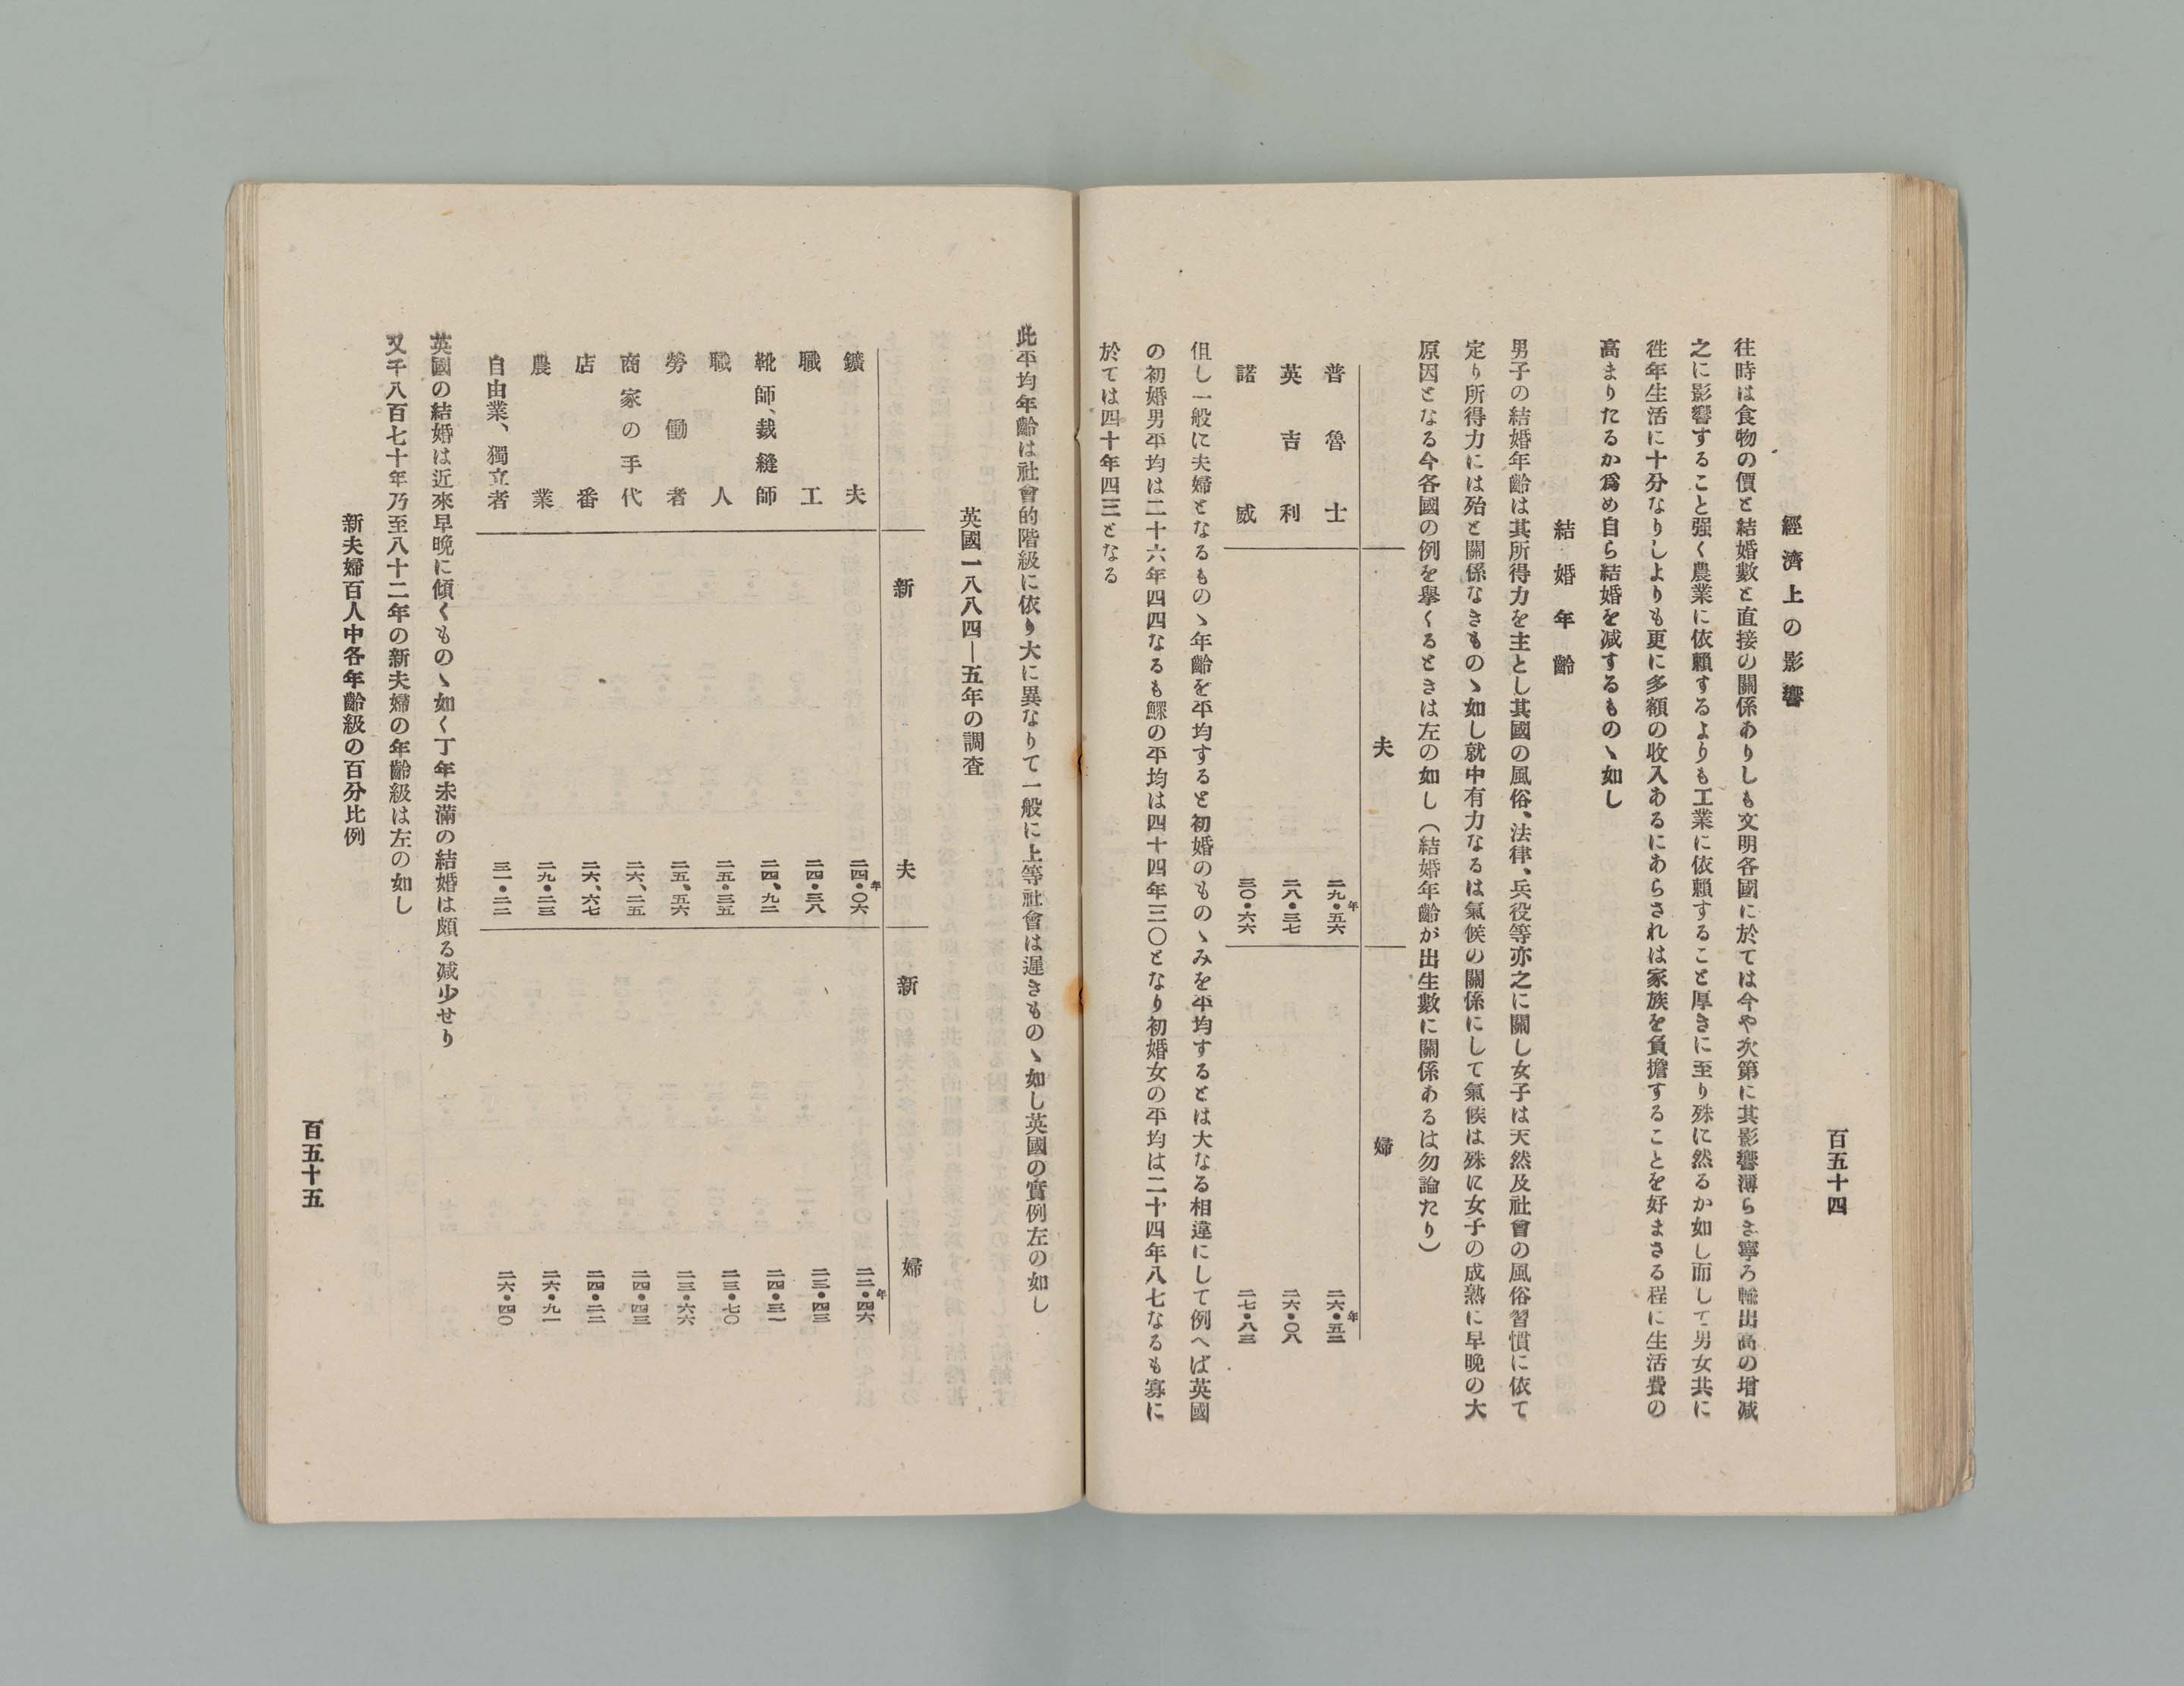 百五十四
經濟上の影響
往時は食物の價と結婚數と直接の關係ありしも文明各國に於ては今や次第に其影響薄らき寧ろ輸出高の增减
之に影響すること强く農業に依賴するよりも工業に依賴すること厚きに至り殊に然るか如し而して男女共に
徃年生活に十分なりしよりも更に多額の收入あるにあらされは家族を負擔することを好まさる程に生活費の
高まりたるか爲め自ら結婚を减するものヽ如し
結婚年齡
男子の結婚年齡は其所得力を主とし其國の風俗、法律、兵役等亦之に關し女子は天然及社會の風俗習慣に依て
定り所得力には殆と關係なきものヽ如し就中有力なるは氣候の關係にして氣候は殊に女子の成熟に早晚の大
原因となる今各國の例を擧くるときは左の如し（結婚年齡が出生數に關係あるは勿論たり）
夫 婦
普魯士 二九・五六年 二六・五二年
英吉利 二八・三七 二六・〇八
諾威 三〇・六六 二七・八三
但し一般に夫婦となるものヽ年齡を平均すると初婚のものヽみを平均するとは大なる相違にして例へば英國
の初婚男平均は二十六年四四なるも鰥の平均は四十四年三〇となり初婚女の平均は二十四年八七なるも寡に
於ては四十年四三となる
此平均年齡は社會的階級に依り大に異なりて一般に上等社會は遲きものヽ如し英國の實例左の如し
英國一八八四―五年の調査
新夫 新婦
鑛夫 二四・〇六年 二二・四六年
職工 二四・三八 二三・四三
靴師、裁縫師 二四、九二 二四・三一
職人 二五・三五 二三・七〇
勞働者 二五、五六 二三・六六
商家の手代 二六、二五 二四・四三
店番 二六、六七 二四・二二
農業 二九・二三 二六・九一
自由業、獨立者 三一・二二 二六・四〇
英國の結婚は近來早晚に傾くものヽ如く丁年未滿の結婚は頗る减少せり
又千八百七十年乃至八十二年の新夫婦の年齡級は左の如し
新夫婦百人中各年齡級の百分比例
百五十五